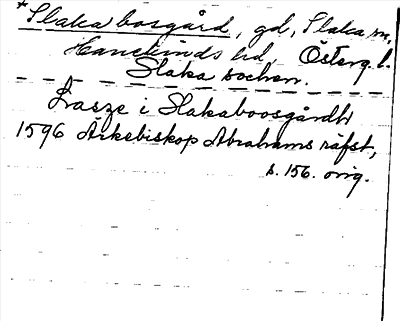 *Slaka bosgård, gd, Slaka sn,
Hanekinds hd, Österg. l.
Slaka socken.
Lasze i Slakaboosgårdh
1596 Ärkebiskop Abrahams räfst,
s. 156. orig.